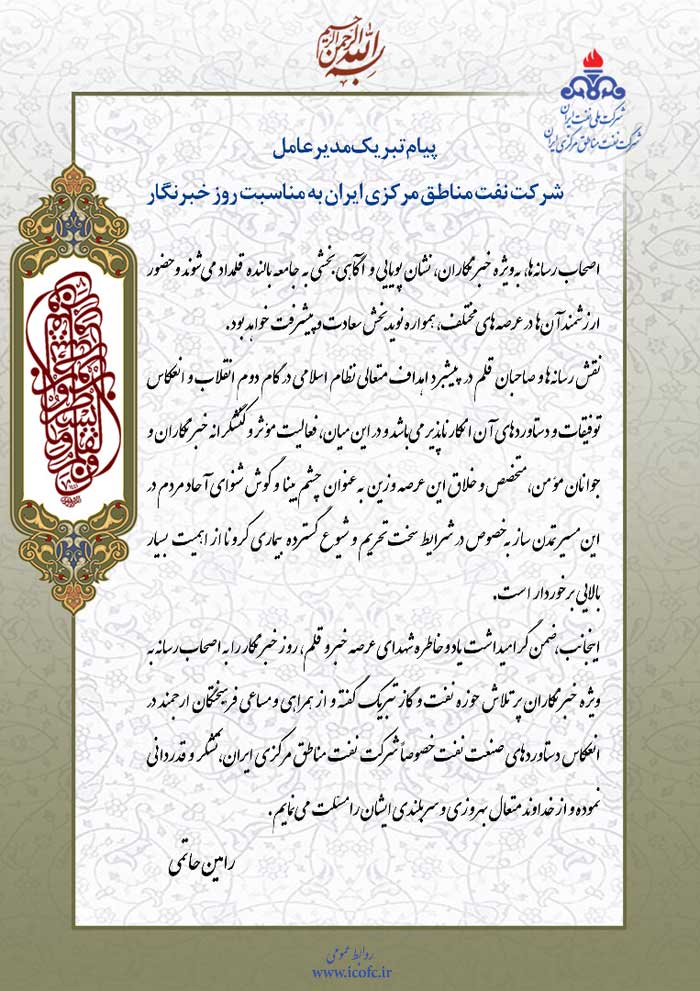 بسم الله الرحمن الرحیم
شرکت ملی نفت ایران
شرکت نفت مناطق مرکزی ایران
پیام تبریک مدیرعامل
شرکت نفت مناطق مرکزی ایران به مناسبت روز خبرنگار
ن والقلم وما يسطرون
اصحاب رسانه‌ها، به‌ویژه خبرنگاران، نشان پویایی و آگاهی‌بخشی به جامعه بالنده قلمداد می‌شوند و حضور
ارزشمند آن‌ها در عرصه‌های مختلف، همواره نویدبخش سعادت و پیشرفت خواهد بود.
نقش رسانه‌ها و صاحبان قلم در پیشبرد اهداف متعالی نظام اسلامی در گام دوم انقلاب و انعکاس
توفیقات و دستاوردهای آن انکارناپذیر می‌باشد و در این میان، فعالیت مؤثر و کنشگرانه خبرنگاران و
جوانان مؤمن، متخصص و خلاق این عرصه وزین به عنوان چشم بینا و گوش شنوای آحاد مردم در
این مسیر تمدن ساز به خصوص در شرایط سخت تحریم و شیوع گسترده بیماری کرونا از اهمیت بسیار
بالایی برخوردار است.
اینجانب، ضمن گرامیداشت یاد و خاطره شهدای عرصه خبر و قلم، روز خبرنگار را به اصحاب رسانه به
ویژه خبرنگاران پرتلاش حوزه نفت و گاز تبریک گفته و از همراهی و مساعی فرهیختگان ارجمند در
انعکاس دستاوردهای صنعت نفت خصوصاً شرکت نفت مناطق مرکزی ایران، تشکر و قدردانی
نموده و از خداوند متعال بهروزی و سربلندی ایشان را مسئلت می‌نمایم.
رامین حاتمی
روابط عمومی
www.icofc.ir